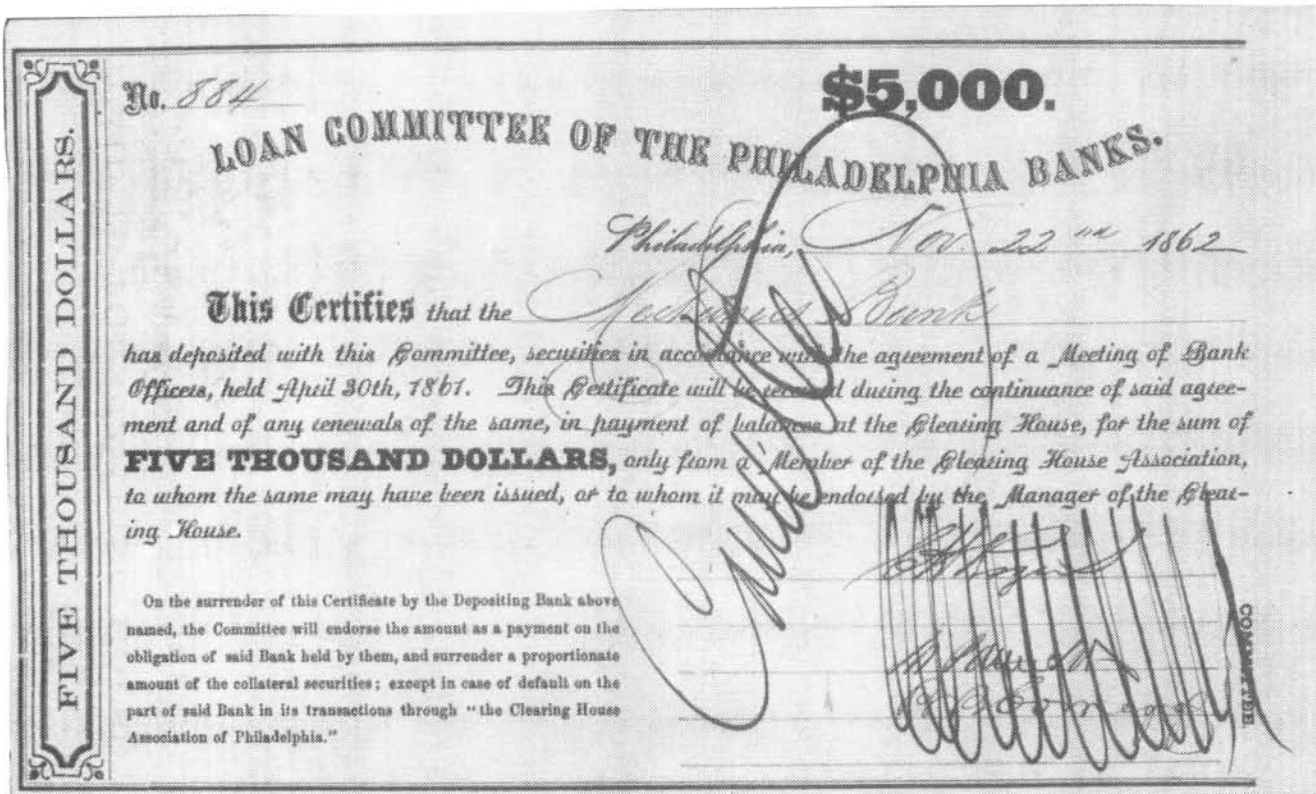 No. 884
$5,000.
LOAN COMMITTEE OF THE PHILADELPHIA BANKS.
Philadelphia, Nov. 22nd 1862
This Certifies that the Mechanics Bank
has deposited with this Committee, securities in accordance with the agreement of a Meeting of Bank
Officers, held April 30th, 1861. This Certificate will be received during the continuance of said agree-
ment and of any renewals of the same, in payment of balances at the Clearing House, for the sum of
FIVE THOUSAND DOLLARS, only from a Member of the Clearing House Association,
to whom the same may have been issued, or to whom it may be endorsed by the Manager of the Clear-
ing House.
On the surrender of this Certificate by the Depositing Bank above
named, the Committee will endorse the amount as a payment on the
obligation of said Bank held by them, and surrender a proportionate
amount of the collateral securities; except in case of default on the
part of said Bank in its transactions through "the Clearing House
Association of Philadelphia."
COMMITTEE
FIVE THOUSAND DOLLARS.
Cancelled